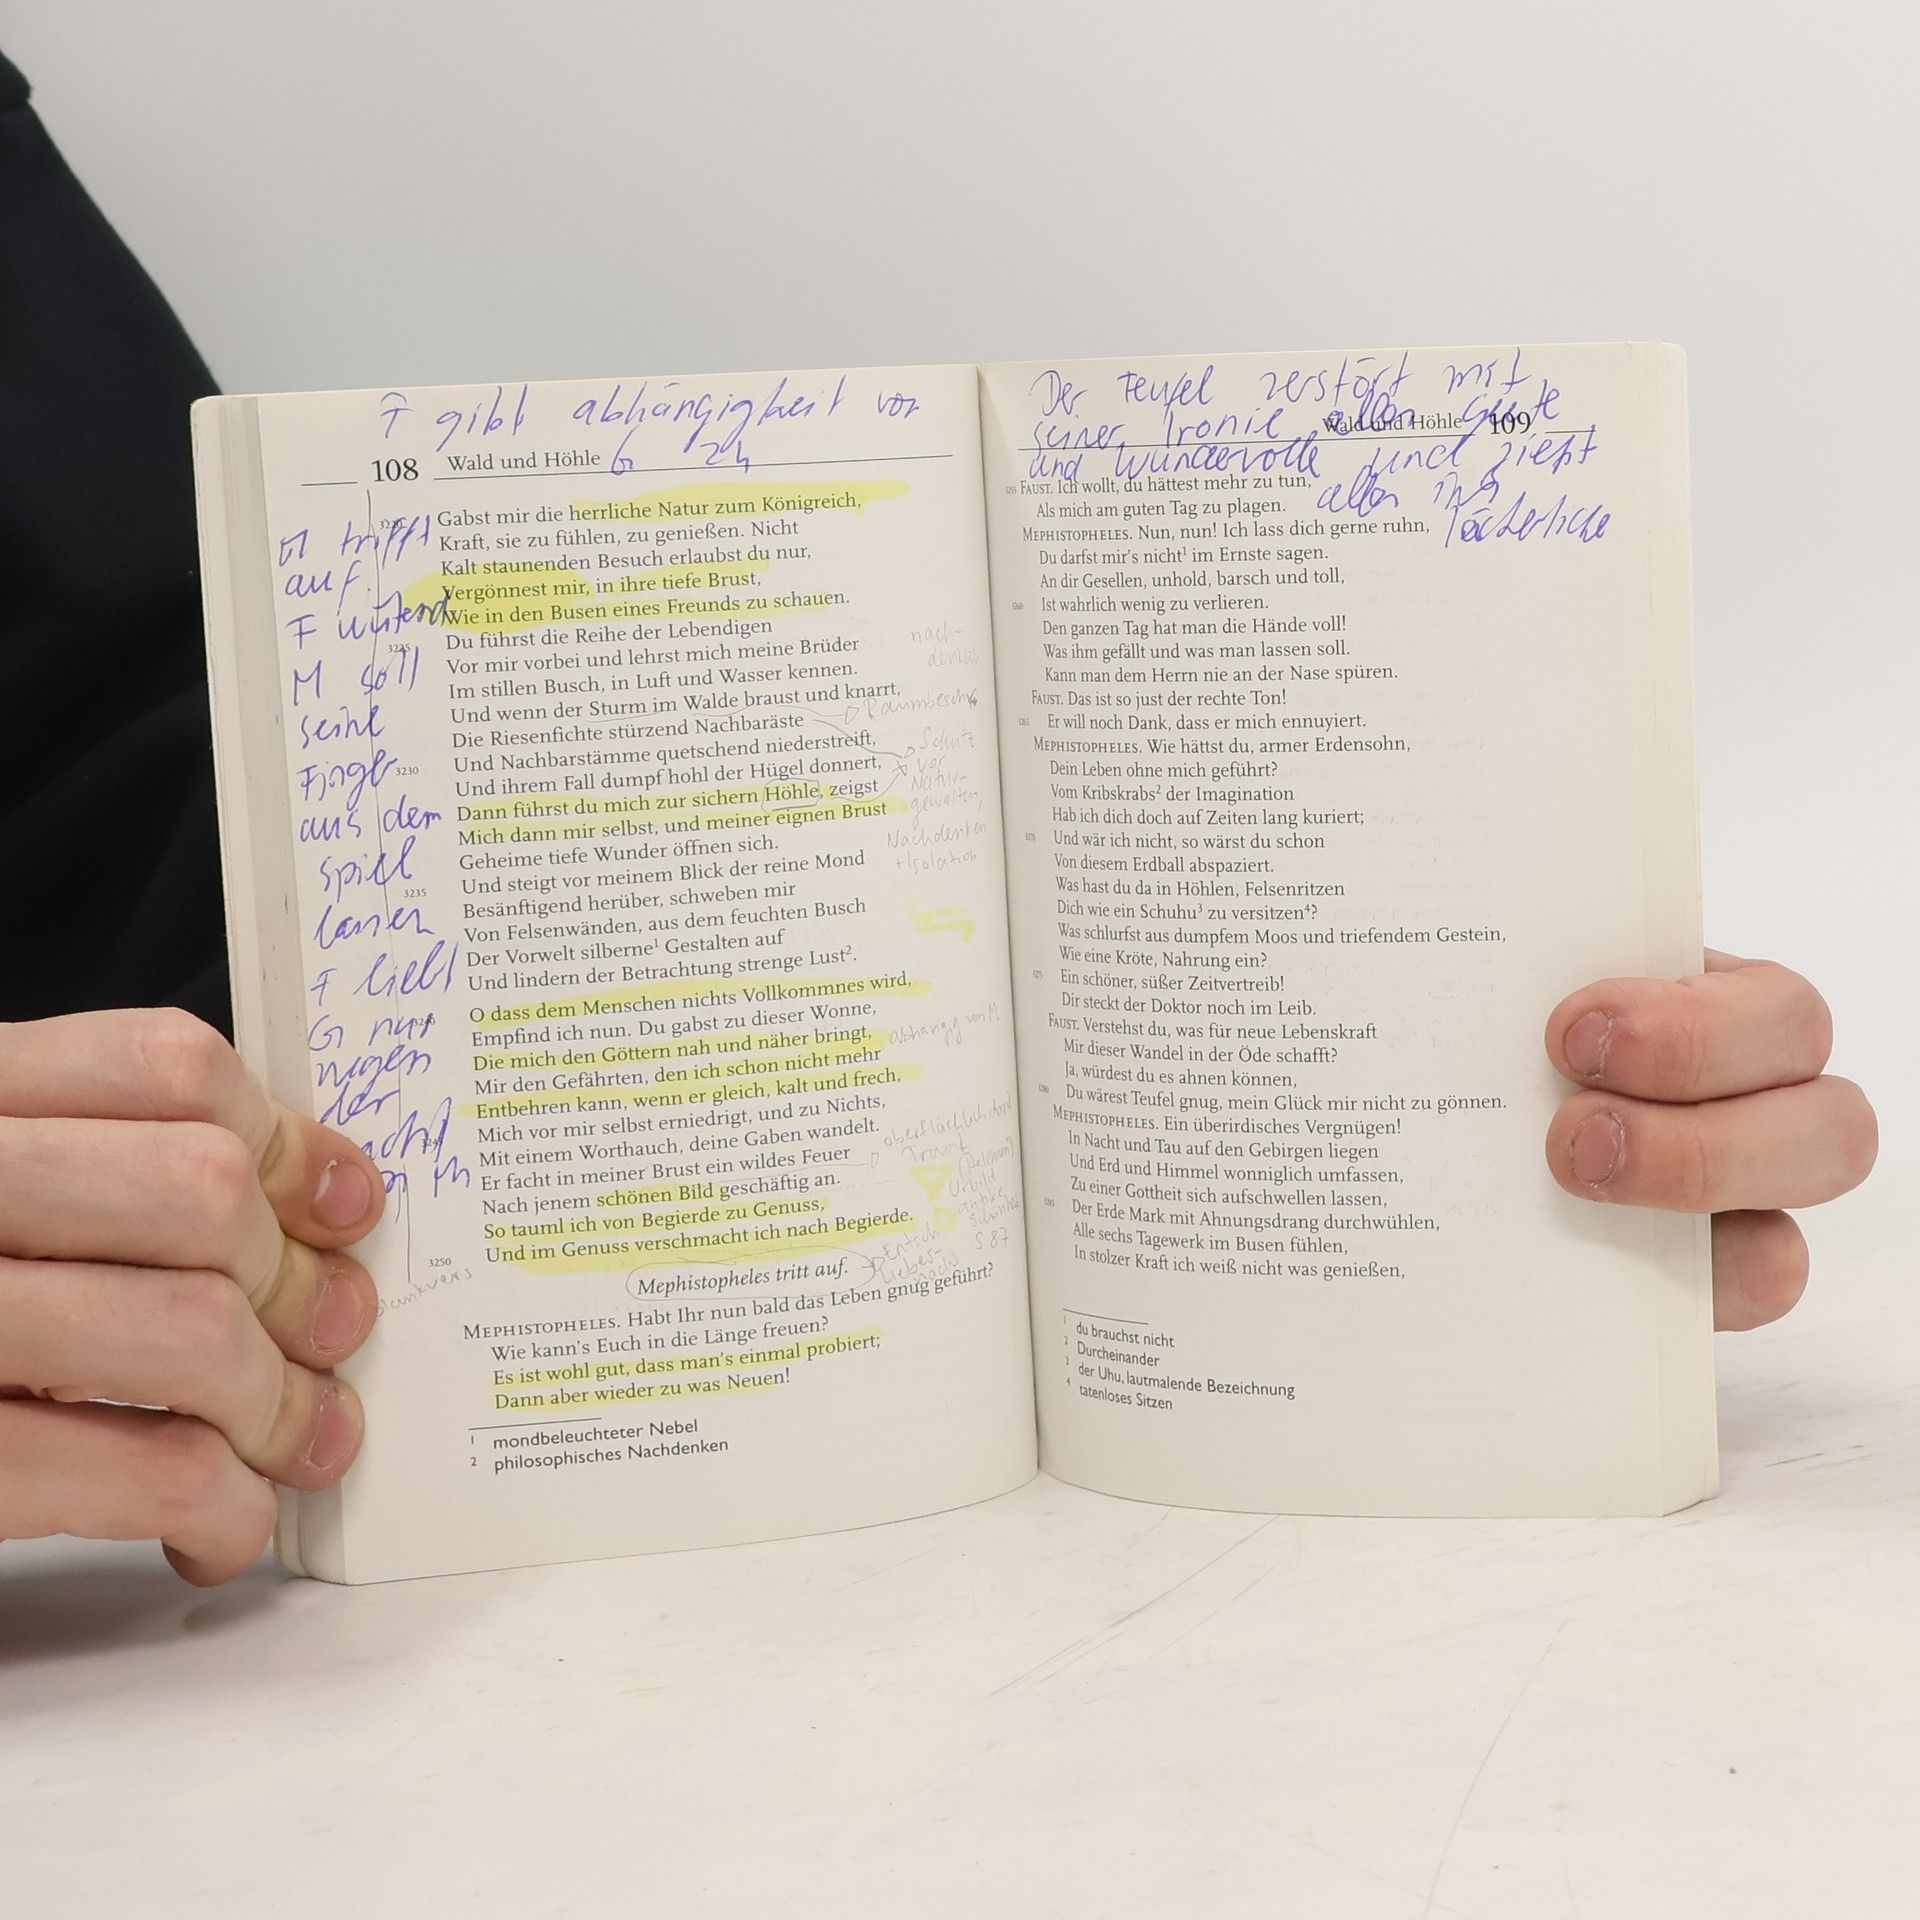 F gibt abhängigkeit von
G zu
108 Wald und Höhle
Gabst mir die herrliche Natur zum Königreich,
3220
Kraft, sie zu fühlen, zu genießen. Nicht
Kalt staunenden Besuch erlaubst du nur,
Vergönnest mir, in ihre tiefe Brust,
Wie in den Busen eines Freunds zu schauen.
Du führst die Reihe der Lebendigen
3225
Vor mir vorbei und lehrst mich meine Brüder
Im stillen Busch, in Luft und Wasser kennen.
Und wenn der Sturm im Walde braust und knarrt,
Die Riesenfichte stürzend Nachbaräste
Und Nachbarstämme quetschend niederstreift,
3230 Und ihrem Fall dumpf hohl der Hügel donnert,
Dann führst du mich zur sichern Höhle, zeigst
Mich dann mir selbst, und meiner eignen Brust
Geheime tiefe Wunder öffnen sich.
Und steigt vor meinem Blick der reine Mond
3235 Besänftigend herüber, schweben mir
Von Felsenwänden, aus dem feuchten Busch
Der Vorwelt silberne¹ Gestalten auf
Und lindern der Betrachtung strenge Lust².
O dass dem Menschen nichts Vollkommnes wird,
Empfind ich nun. Du gabst zu dieser Wonne,
Die mich den Göttern nah und näher bringt,
Mir den Gefährten, den ich schon nicht mehr
Entbehren kann, wenn er gleich, kalt und frech,
Mich vor mir selbst erniedrigt, und zu Nichts,
3245 Mit einem Worthauch, deine Gaben wandelt.
Er facht in meiner Brust ein wildes Feuer
Nach jenem schönen Bild geschäftig an.
So tauml ich von Begierde zu Genuss,
Und im Genuss verschmacht ich nach Begierde.
3250 Mephistopheles tritt auf.
MEPHISTOPHELES. Habt Ihr nun bald das Leben gnug geführt?
Wie kann's Euch in die Länge freuen?
Es ist wohl gut, dass man's einmal probiert;
Dann aber wieder zu was Neuen!
1 mondbeleuchteter Nebel
2 philosophisches Nachdenken
trifft
auf.
F wütend
M soll
seine
Finger
aus dem
Spiel
lassen
F liebt
G nur
wegen
der
nach-
denklich
Raumbeschr.
Schutz
vor
Natur-
gewalten,
Nachdenken
+Isolation
abhängig von M.
oberflächlich
Trank
(Helena)
Urbild
antike
Schönheit
S. 87
Blankvers
Der Teufel zerstört mit
seiner Ironie alles Gute
und Wundervolle und zieht
alles ins
Lächerliche
Wald und Höhle 109
3255 FAUST. Ich wollt, du hättest mehr zu tun,
Als mich am guten Tag zu plagen.
MEPHISTOPHELES. Nun, nun! Ich lass dich gerne ruhn,
Du darfst mir's nicht¹ im Ernste sagen.
An dir Gesellen, unhold, barsch und toll,
3260 Ist wahrlich wenig zu verlieren.
Den ganzen Tag hat man die Hände voll!
Was ihm gefällt und was man lassen soll.
Kann man dem Herrn nie an der Nase spüren.
FAUST. Das ist so just der rechte Ton!
3265 Er will noch Dank, dass er mich ennuyiert.
MEPHISTOPHELES. Wie hättst du, armer Erdensohn,
Dein Leben ohne mich geführt?
Vom Kribskrabs² der Imagination
Hab ich dich doch auf Zeiten lang kuriert;
3270 Und wär ich nicht, so wärst du schon
Von diesem Erdball abspaziert.
Was hast du da in Höhlen, Felsenritzen
Dich wie ein Schuhu³ zu versitzen⁴?
Was schlurfst aus dumpfem Moos und triefendem Gestein,
Wie eine Kröte, Nahrung ein?
3275 Ein schöner, süßer Zeitvertreib!
Dir steckt der Doktor noch im Leib.
FAUST. Verstehst du, was für neue Lebenskraft
Mir dieser Wandel in der Öde schafft?
Ja, würdest du es ahnen können,
3280 Du wärest Teufel gnug, mein Glück mir nicht zu gönnen.
MEPHISTOPHELES. Ein überirdisches Vergnügen!
In Nacht und Tau auf den Gebirgen liegen
Und Erd und Himmel wonniglich umfassen,
Zu einer Gottheit sich aufschwellen lassen,
3285 Der Erde Mark mit Ahnungsdrang durchwühlen,
Alle sechs Tagewerk im Busen fühlen,
In stolzer Kraft ich weiß nicht was genießen,
1 du brauchst nicht
2 Durcheinander
3 der Uhu, lautmalende Bezeichnung
4 tatenloses Sitzen